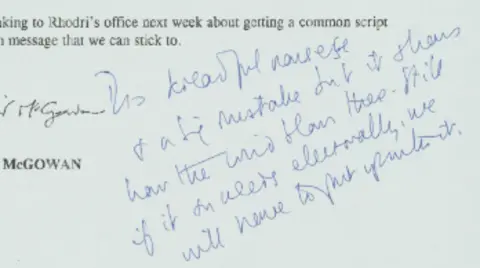 king to Rhodri's office next week about getting a common script
message that we can stick to.
McGowan
This dreadful nonsense
& a big mistake but it shows
how the wind blows there. Still
if it succeeds electorally, we
will have to put up with it.
McGOWAN